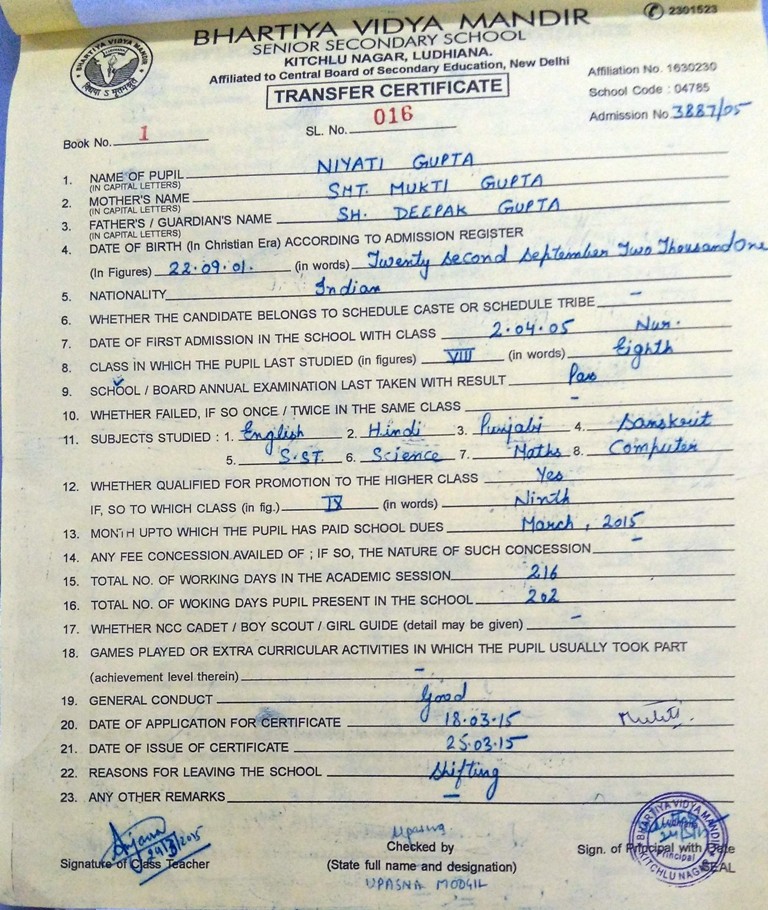 2301523
BHARTIYA VIDYA MANDIR
BHARTIYA VIDYA MANDIR
SENIOR SECONDARY SCHOOL
KITCHLU NAGAR, LUDHIANA.
Affiliated to Central Board of Secondary Education, New Delhi
TRANSFER CERTIFICATE
Affiliation No. 1630230
School Code : 04785
Admission No. 3887/05
Book No. 1
SL. No. 016
1. NAME OF PUPIL NIYATI GUPTA
(IN CAPITAL LETTERS)
2. MOTHER'S NAME SMT. MUKTI GUPTA
(IN CAPITAL LETTERS)
3. FATHER'S / GUARDIAN'S NAME SH. DEEPAK GUPTA
(IN CAPITAL LETTERS)
4. DATE OF BIRTH (In Christian Era) ACCORDING TO ADMISSION REGISTER
(In Figures) 22.09.01. (in words) Twenty second September Two Thousand One
5. NATIONALITY Indian
6. WHETHER THE CANDIDATE BELONGS TO SCHEDULE CASTE OR SCHEDULE TRIBE –
7. DATE OF FIRST ADMISSION IN THE SCHOOL WITH CLASS 2.04.05 Nur.
8. CLASS IN WHICH THE PUPIL LAST STUDIED (in figures) VIII (in words) Eighth
9. SCHOOL / BOARD ANNUAL EXAMINATION LAST TAKEN WITH RESULT Pass
10. WHETHER FAILED, IF SO ONCE / TWICE IN THE SAME CLASS –
11. SUBJECTS STUDIED : 1. English 2. Hindi 3. Punjabi 4. Sanskrit
5. S.ST. 6. Science 7. Maths 8. Computer
12. WHETHER QUALIFIED FOR PROMOTION TO THE HIGHER CLASS Yes
IF, SO TO WHICH CLASS (in fig.) IX (in words) Ninth
13. MONTH UPTO WHICH THE PUPIL HAS PAID SCHOOL DUES March, 2015
14. ANY FEE CONCESSION.AVAILED OF ; IF SO, THE NATURE OF SUCH CONCESSION –
15. TOTAL NO. OF WORKING DAYS IN THE ACADEMIC SESSION 216
16. TOTAL NO. OF WOKING DAYS PUPIL PRESENT IN THE SCHOOL 202
17. WHETHER NCC CADET / BOY SCOUT / GIRL GUIDE (detail may be given) –
18. GAMES PLAYED OR EXTRA CURRICULAR ACTIVITIES IN WHICH THE PUPIL USUALLY TOOK PART
(achievement level therein) –
19. GENERAL CONDUCT Good
20. DATE OF APPLICATION FOR CERTIFICATE 18.03.15 Mukti
21. DATE OF ISSUE OF CERTIFICATE 25.03.15
22. REASONS FOR LEAVING THE SCHOOL Shifting
23. ANY OTHER REMARKS –
Anjana
24/3/2015
Signature of Class Teacher
Upasna
Checked by
(State full name and designation)
UPASNA MODGIL
BHARTIYA VIDYA MANDIR
Principal
KITCHLU NAGAR
Sign. of Principal with Date
SEAL